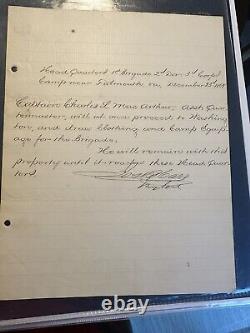 Head Quarters 1st Brigade 2d Div. 3d Corps
Camp near Falmouth Va, December 25th
Captain Charles L. Mac Arthur, Asst. Quar-
termaster, will at once proceed to Washing-
ton, and draw Clothing and Camp Equip-
age for the Brigade.
He will remain with this
property until it reaches these Head Quar-
ters